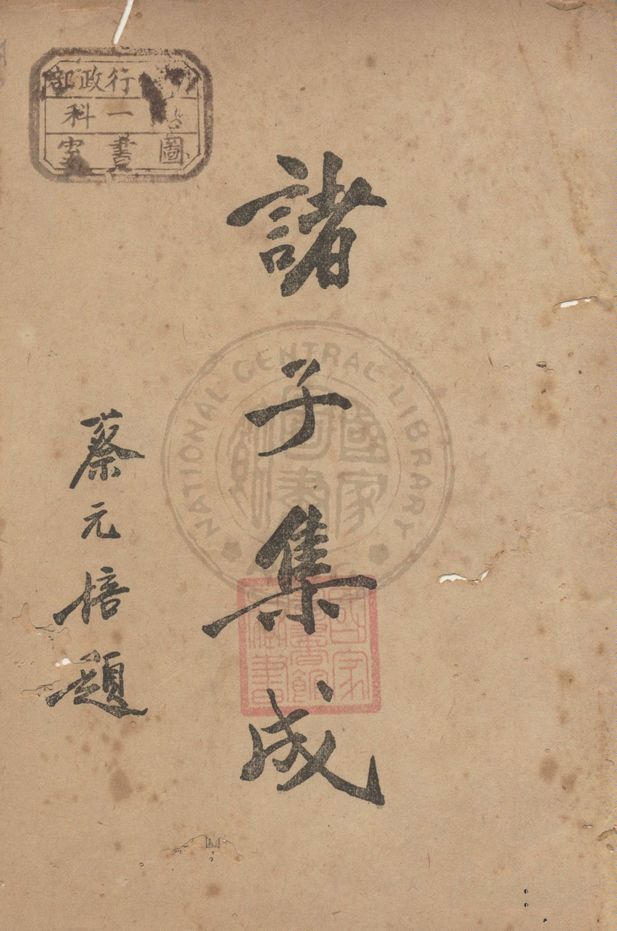 諸子集成
蔡元培題
行政部
科一
室書圖
NATIONAL CENTRAL LIBRARY
國家圖書館
國家圖書館藏書